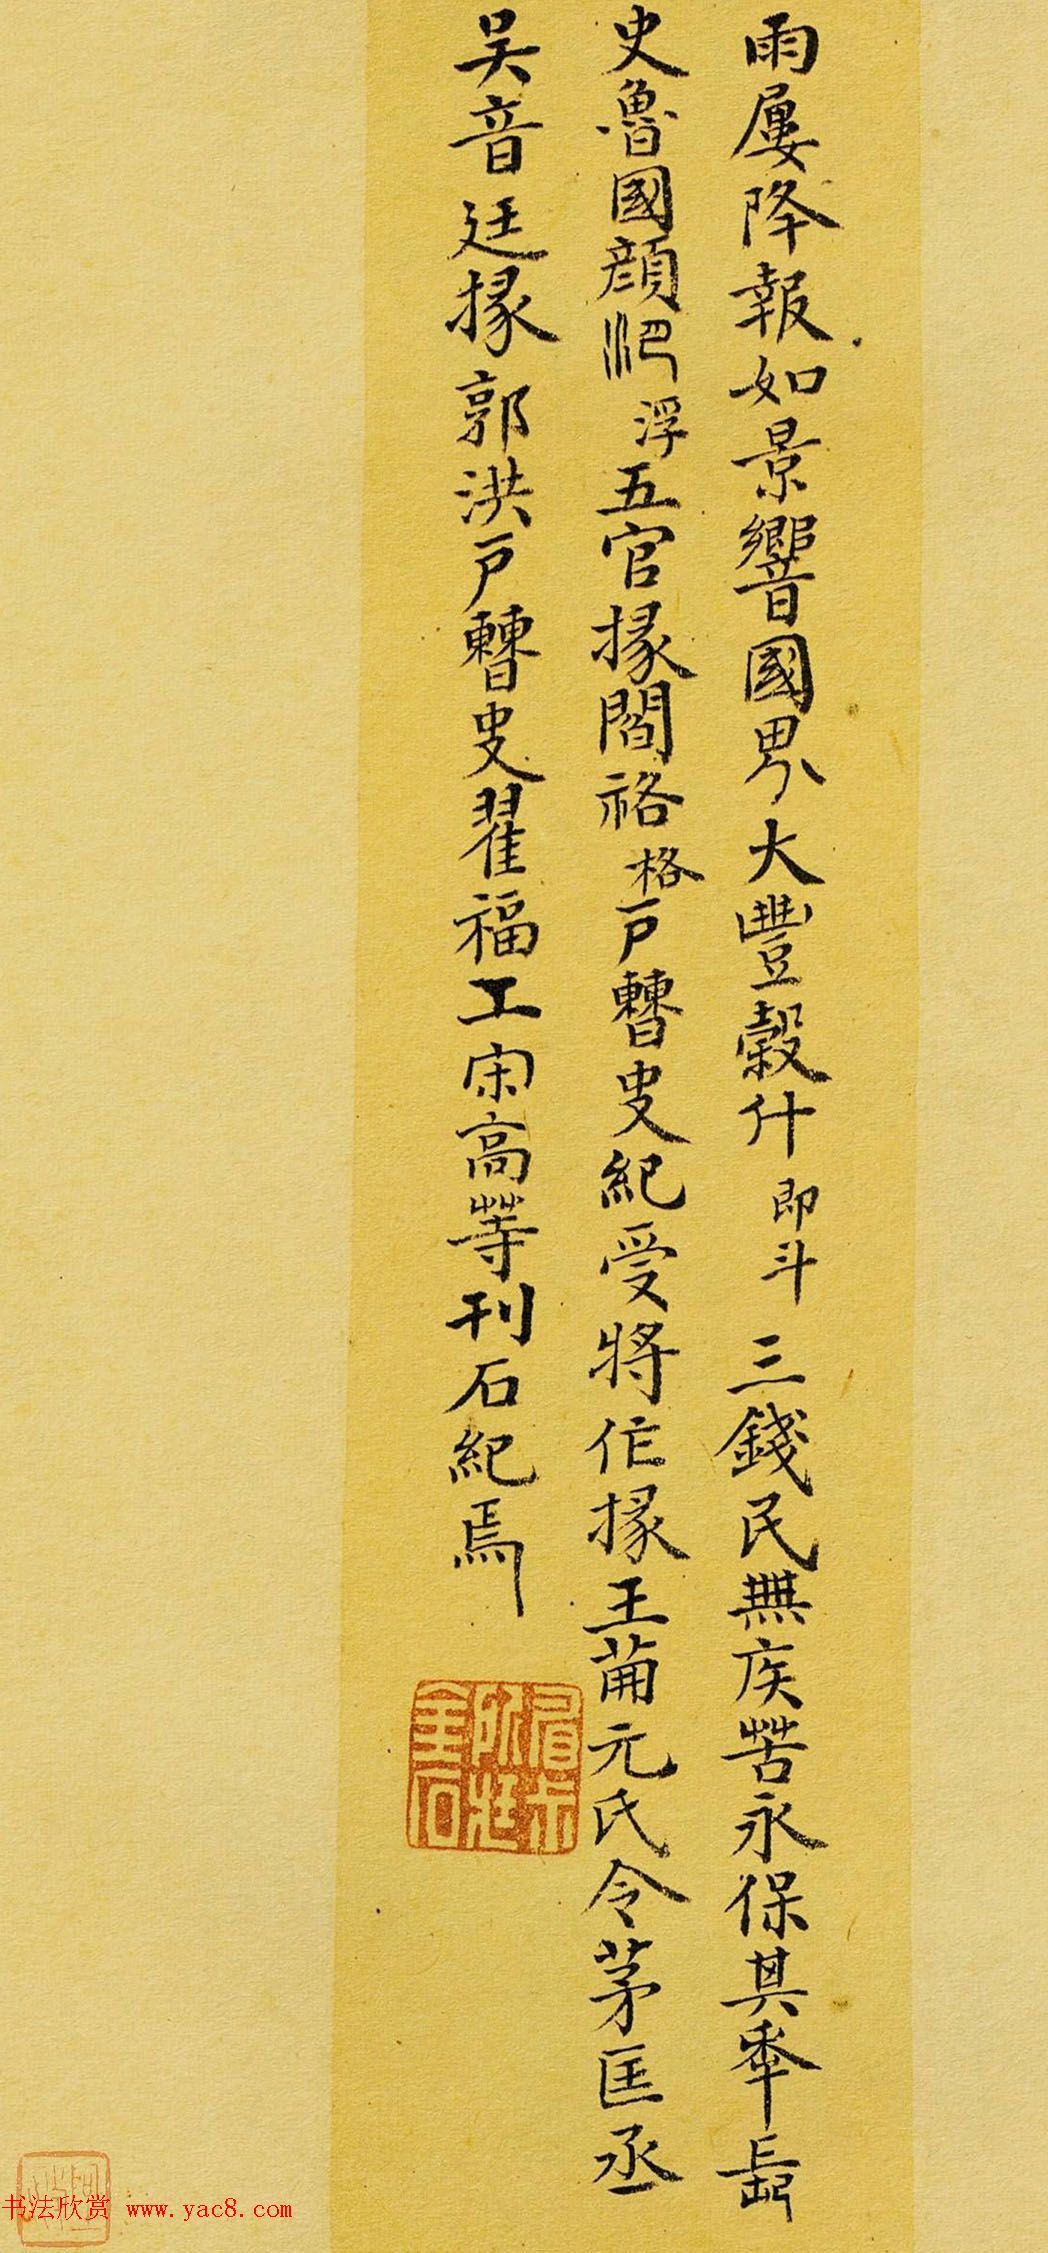 雨屢降報如景響國界大豐穀什即斗三錢民無疾苦永保其秊長
史魯國顏浮五官掾閻祫格戶曹史紀受將作掾王萳元氏令茅匡丞
吴音廷掾郭洪戶曹史翟福工宋高等刊石紀焉
眉
所藏
金石
书法欣赏 www.yac8.com